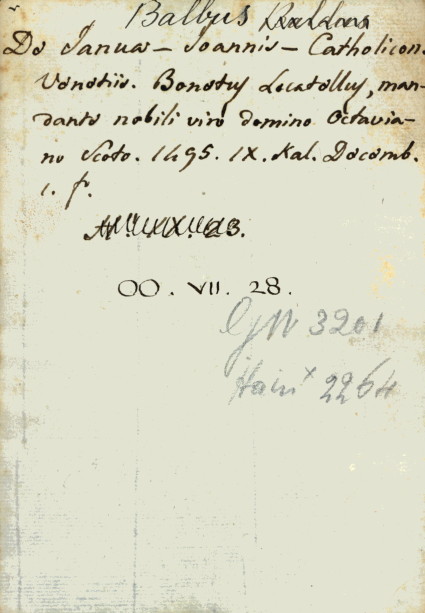 Balbus
De Janua – Joannis – Catholicon.
Venetiis. Bonetus Locatellus, man-
dante nobili viro domino Octavia-
no Scoto. 1495. IX. Kal. Decemb.
1. f.
OO. VII. 28.
GW 3201
Hain x 2264